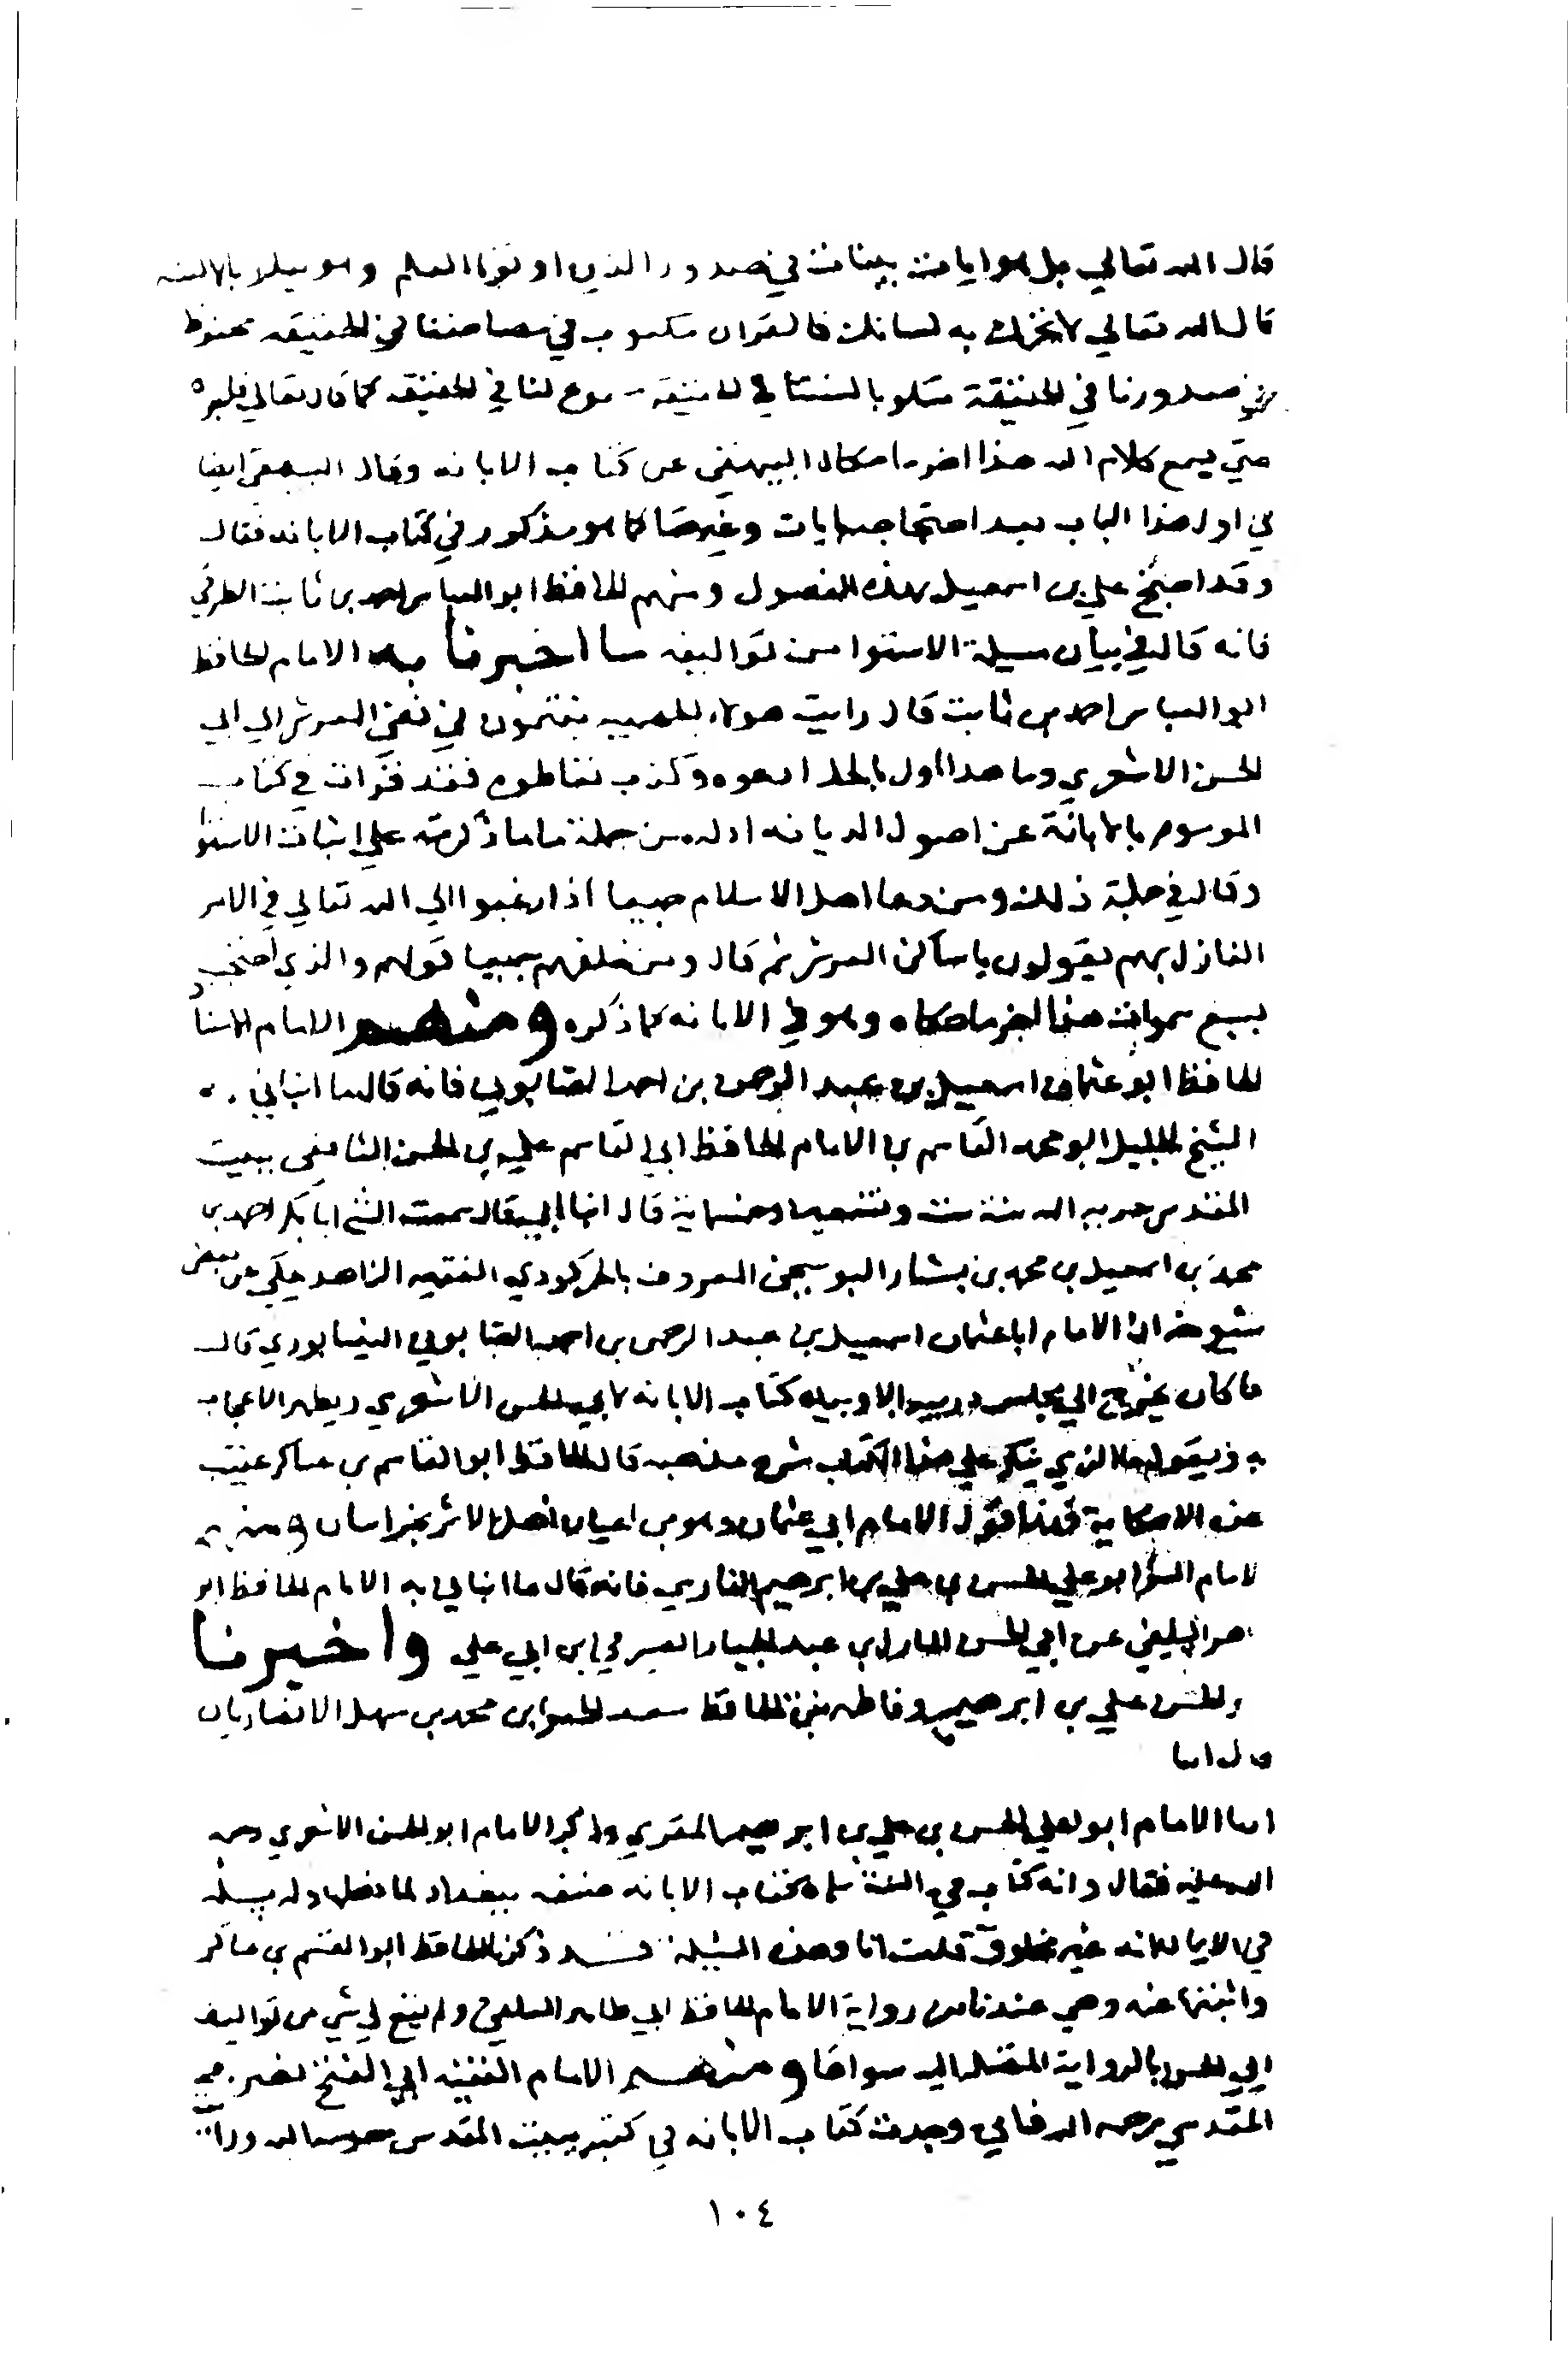 قال الله تعالي بل هو ايات بينات في صدور الذين اوتوا العلم وهو متلو بالالسنه
قال الله تعالي لا تحرك به لسانك فالقران مكتوب في مصاحفنا في الحقيقه محفوظ
في صدورنا في الحقيقة متلو بالسنتنا في الحقيقه مسموع لنا في الحقيقه كما قال تعالي فاجره
حتي يسمع كلام الله هذا اخر ما حكاه البيهقي عن كتاب الابانه وقال البيهقي ايضا
في اول هذا الباب بعد احتجاجه بايات وغيرها كما هو مذكور في كتاب الابانه فقال
وقد احتج علي بن اسمعيل بهذه الفصول ومنهم الحافظ ابو العباس احمد بن ثابت الطرقي
فانه قال في بيان مسيلة الاستوا من تواليفه ما اخبرنا به الامام الحافظ
ابو العباس احمد بن ثابت قال رايت هولاء الجهميه ينتمون في نفي العرش الي ابي
الحسن الاشعري وما هذا باول باطل ادعوه وكذب تعاطوه فقد قرات في كتابه
الموسوم بالابانة عن اصول الديانه ادله من جملة ما ذكرته علي اثبات الاستوا
وقال في جملة ذلك ومن دعا اهل الاسلام جميعا اذا رغبوا الي الله تعالي في الامر
النازل بهم يقولون يا ساكن العرش ثم قال ومن حلفهم جميعا قولهم والذي احتجب
بسبع سموات هذا اخر ما حكاه وهو في الابانه كما ذكره ومنهم الامام الاستاذ
الحافظ ابو عثمان اسمعيل بن عبد الرحمن بن احمد الصابوني فانه قال ما انباني به
الشيخ الجليل ابو محمد القاسم بن الامام الحافظ ابي القاسم علي بن الحسن الشافعي ببيت
المقدس حرسه الله سنة ست وتسعين وخمسماية قال انبا ابي قال سمعت الشيخ ابا بكر احمد بن
محمد بن اسمعيل بن محمد بن بشار البوسنجي المعروف بالخركردي الفقيه الزاهد يحكي عن بعض
شيوخه ان الامام ابا عثمان اسمعيل بن عبد الرحمن بن احمد الصابوني النيسابوري قال
ما كان يخرج الي مجلس درسه الا وبيده كتاب الابانه لابي الحسن الاشعري ويظهر الاعجاب
به ويقول ما الذي ينكر علي من هذا الكتاب شرح مذهبه قال الحافظ ابو القاسم بن عساكر عقيب
هذه الحكاية فهذا قول الامام ابي عثمان وهو من اعيان اهل الاثر بخراسان ومنهم
الامام المقرا ابو علي الحسن بن علي بن ابرهيم الفارسي فانه قال ما انباني به الامام الحافظ ابو
طاهر السلفي عن ابي الحسن المبارك بن عبد الجبار الصيرفي ابن ابي علي واخبرنا
ابو الحسن علي بن ابرهيم وفاطمه بنت الحافظ سعد الخير ابن محمد بن سهل الانصاريان
قال انبا
انبا الامام ابو علي الحسن بن علي بن ابرهيم المقري وذكر الامام ابو الحسن الاشعري رحمه
الله عليه فقال وله كتاب في السنة سماه كتاب الابانه صنفه ببغداد لما دخلها وله مسيله
في الايمان انه غير مخلوق قلت انا وهذه المسيلة قد ذكرها الحافظ ابو القسم بن عساكر
واثبتها عنه وهي عندنا من رواية الامام الحافظ ابي طاهر السلفي ولم يقع لي شي من تواليف
ابي الحسن بالرواية المتصله اليه سواها ومنهم الامام الفقيه ابي الفتح نصر
المقدسي رحمه الله فاني وجدت كتاب الابانه في كتبه ببيت المقدس حرسه الله ورايت
١٠٤